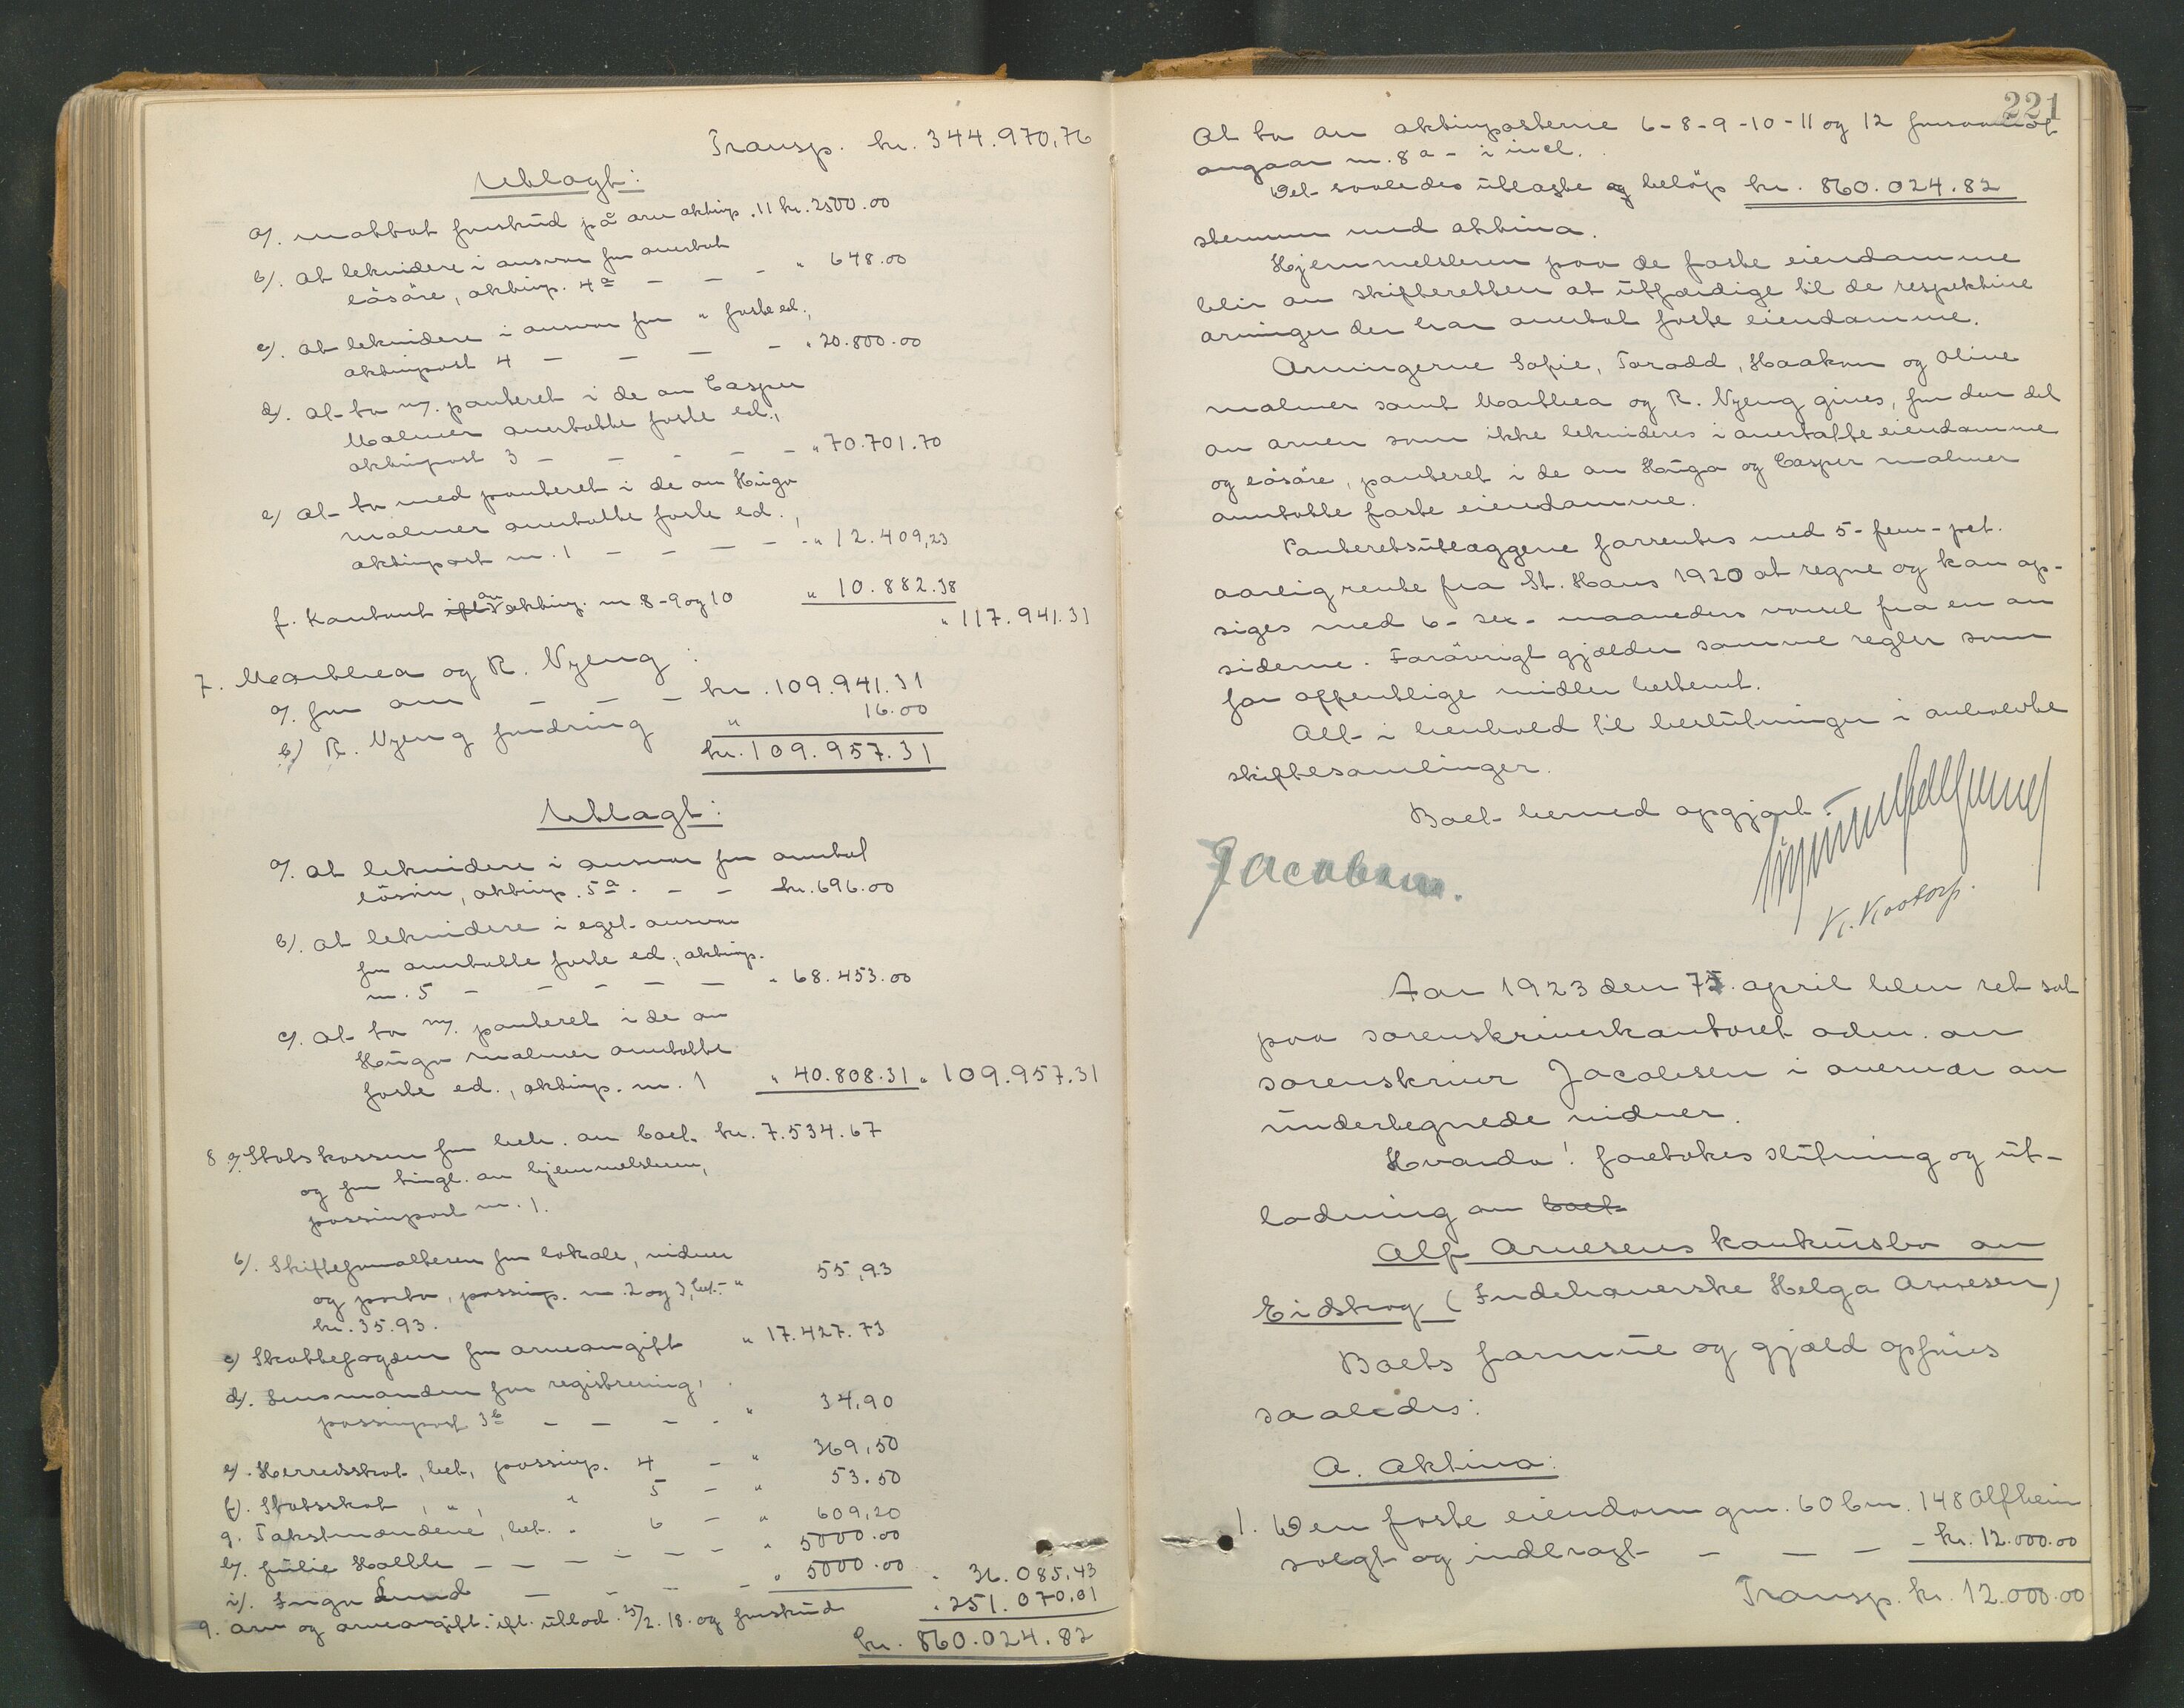 Transp. kr. 344.970,76
Utlagt:
a). mottat forskud på arv aktivp. 11 kr. 2500.00
b). At lekvidere i ansvar for overtat
løsøre, aktivp. 4a - - - " 648.00
c). At lekvidere i ansvar for " faste ed.,
aktivpost 4 - - - - " 20.800.00
d). At ta m/. panteret i de av Casper
Malmer overtatte faste ed.,
aktivpost 3 - - - - - " 70.701.70
e) At ta med panteret i de av Hugo
Malmer overtatte faste ed.,
aktivpost nr. 1 - - - - " 12.409,23
f. Kontant av aktivp. nr 8-9 og 10 " 10.882.38
" 117.941.31
7. Marthea og R. Nyeng:
a). for arv - - - kr. 109.941.31
b) R. Nyeng fordring " 16.00
kr. 109.957.31
Utlagt:
a). At lekvidere i ansvar for overtat
løsøre, aktivp. 5a. - - kr. 696.00
b). At lekvidere i eget ansvar
for overtatte faste ed., aktivp.
nr. 5 - - - - - " 68.453.00
c). At ta m/. panteret i de av
Hugo Malmer overtatte
faste ed., aktivp. nr. 1 " 40.808.31 " 109.957.31
8 a). Statskassen for beh. av boet kr. 7.534.67
og for tingl. av hjemmelsbrev,
passivpost nr. 1.
b). Skifteforvalteren for lokale, vidner
og porto, passivp. nr. 2 og 3, bet. " 55,93
kr. 35.93.
c) Skattefogden for arveavgift " 17.427.73
d). Lensmanden for registrering,
passivpost 3b - - - - " 34,90
e). Herredsskat, bet., passivp. 4 - " 369,50
f). Statsskat, ", " 5 - " 53.50
g. Takstmændene, bet. " 6 - " 609,20
h). Julie Holtle - - - - - - " 5000.00
i). Inga Lund - - - - " 5000.00 " 36.085,43
9. Arv og arveavgift ift. utlod. 25/2. 18. og forskud " 251.070,01
kr. 860.024.82
221
At ta av aktivposterne 6-8-9-10-11 og 12 forsaavidt
angaar nr. 8a - i incl.
Det saaledes utlagte beløp kr. 860.024.82
stemmer med aktiva.
Hjemmelsbrev paa de faste eiendomme
blir av skifteretten at utfærdige til de respektive
arvinger der har overtat faste eiendomme.
Arvingerne Sofie, Torodd, Haakon og Oline
Malmer samt Marthea og R. Nyeng gives, for den del
av arven som ikke lekvideres i overtatte eiendomme
og løsøre, panteret i de av Hugo og Casper Malmer
overtatte faste eiendomme.
Panteretsutlæggene forrentes med 5 - fem - pct.
aarlig rente fra St. Hans 1920 at regne og kan op-
siges med 6 - sex - maaneders varsel fra en av
siderne. Forøvrigt gjælder samme regler som
for offentlige midler bestemt.
Alt i henhold til beslutninger i avholdte
skiftesamlinger.
Boet hermed opgjort.
Jacobsen.
K. Kootorp.
Aar 1923 den 75. april blev ret sat
paa sorenskriverkontoret adm. av
sorenskriver Jacobsen i overvær av
undertegnede vidner.
Hvorda! foretokes slutning og ut-
lodning av boet
Alf Arnesens konkursbo av
Eidskog (Indehaverske Helga Arnesen)
Boets formue og gjæld opføres
saaledes:
A. Aktiva:
1. Den faste eiendom gnr. 60 bnr. 148 Alfheim
solgt og indbragt - - - - kr. 12.000.00
Transp. kr. 12.000.00